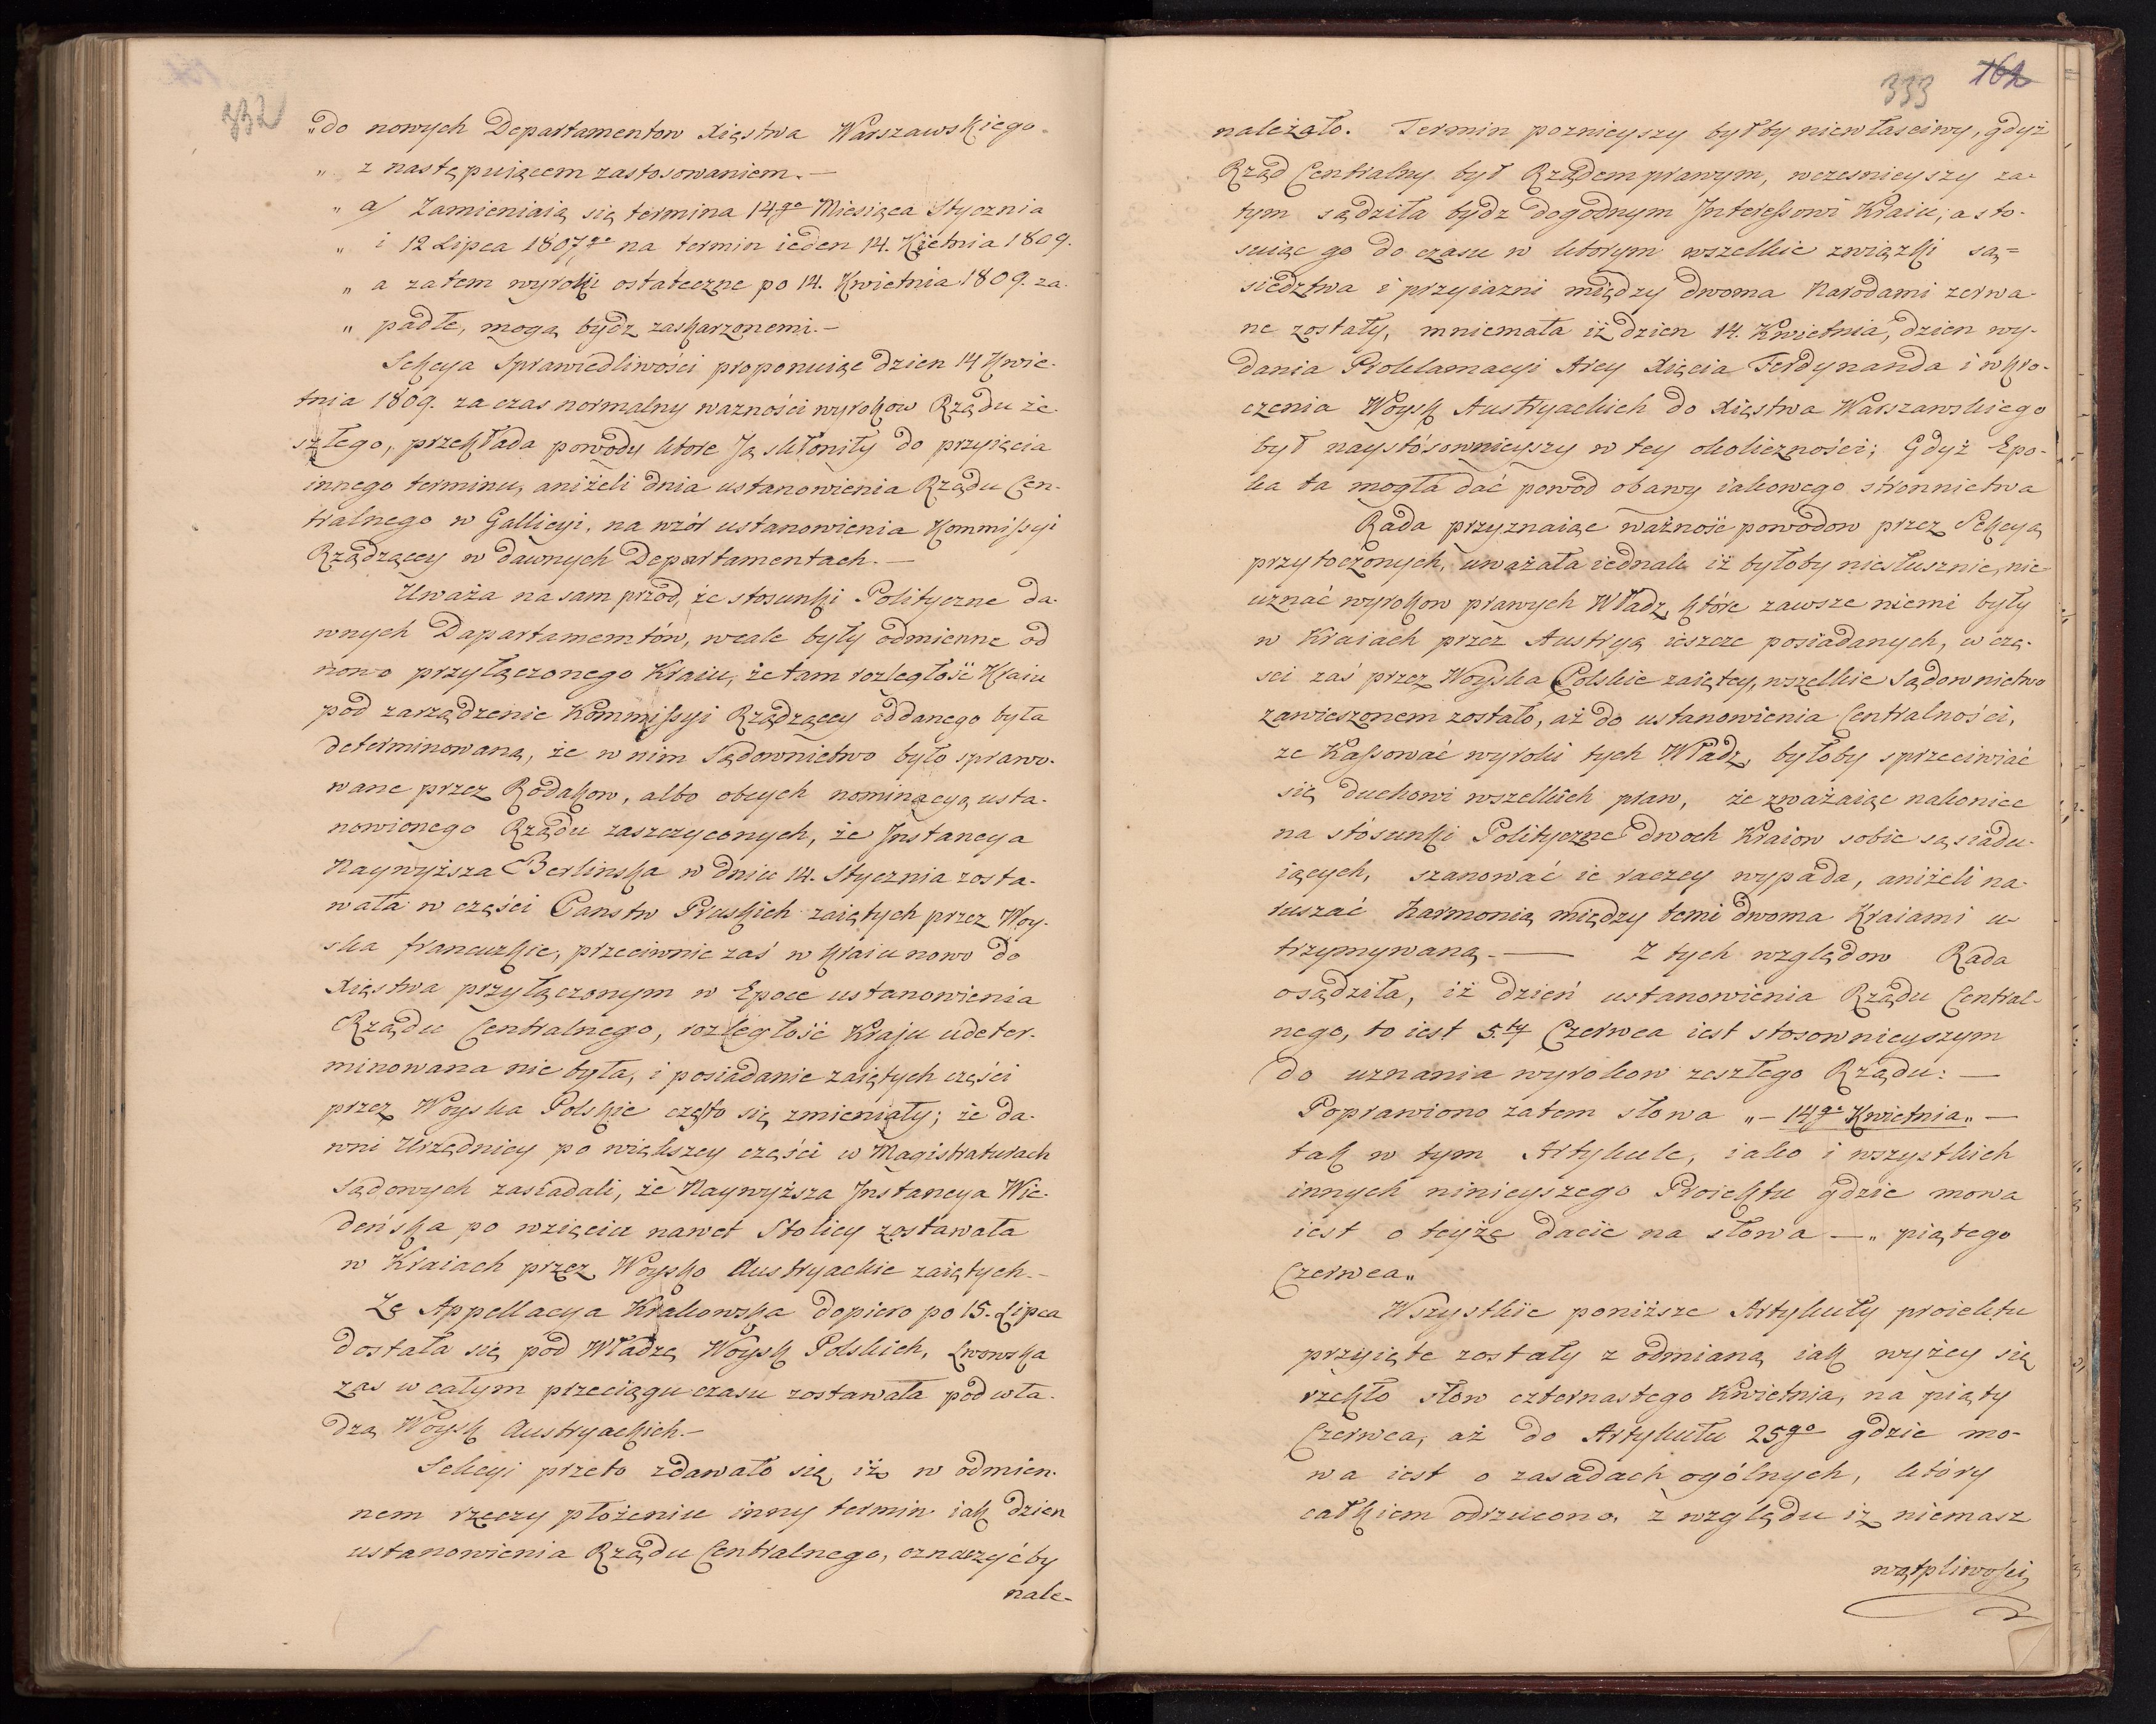 332
„do nowych Departamentow Xięstwa Warszawskiego
„ z następuiącem zastosowaniem. —
„ a/ Zamieniaią się termina 14go Miesiąca Stycznia
„ i 12 Lipca 1807go na termin ieden 14. Kwietnia 1809.
„ a zatem wyroki ostateczne po 14. Kwietnia 1809. za-
„ padłe, mogą bydz zaskarzonemi. —
Sekcya Sprawiedliwości proponuiąc dzien 14 Kwie-
tnia 1809. za czas normalny wazności wyrokow Rządu ze-
szłego, przekłada powody ktore Ją skłoniły do przyięcia
innego terminu, aniżeli dnia ustanowienia Rządu Cen-
tralnego w Gallicyi, na wzór ustanowienia Kommissyi
Rządzącey w dawnych Departamentach. —
Uważa na sam przód, że stosunki Polityczne da-
wnych Dapartamemtów, wcale były odmienne od
nowo przyłączonego Kraiu, że tam rozległość Kraiu
pod zarządzenie Kommissyi Rządzącey oddanego była
determinowaną, że w nim Sądownictwo było sprawo-
wane przez Rodakow, albo obcych nominacyą usta-
nowionego Rządu zaszczyconych, że Instancya
Naywyższa Berlinska w dniu 14. Stycznia zosta-
wała w części Panstw Pruskich zaiętych przez Woy-
ska francuzkie, przeciwnie zaś w kraiu nowo do
Xięstwa przyłączonym w Epoce ustanowienia
Rządu Centralnego, rozległość Kraju udeter-
minowana nie była, i posiadanie zaiętych części
przez Woyska Polskie często się zmieniały; że da-
wni Urzędnicy po większey części w Magistraturach
Sądowych zasiadali, że Naywyższa Instancya Wie-
deńska po wzięciu nawet Stolicy zostawała
w Kraiach przez Woysko Austryackie zaiętych. —
Ze Appellacya Krakowska dopiero po 15. Lipca
dostała się pod Władzę Woysk Polskich, Lwowska
zas w całym przeciągu czasu zostawała pod wła-
dzą Woysk Austryackich. —
Sekcyi przeto zdawało się, iż w odmien-
nem rzeczy płożeniu inny termin iak dzien
ustanowienia Rządu Centralnego, oznaczyć by
nale-
333 162
należało. Termin poznieyszy byłby niewłasciwy, gdyż
Rząd Centralny był Rządem prawym, wczesnieyszy za-
tym sądziła bydz dogodnym Interessowi Kraiu; a sto-
suiąc go do czasu w ktorym wszelkie związki są=
siedztwa i przyiazni między dwoma Narodami zerwa-
ne zostały, mniemała iż dzien 14. Kwietnia, dzien wy-
dania Proklamacyi Arcy Xięcia Ferdynanda i wkro-
czenia Woysk Austryackich do Xięstwa Warszawskiego
był naystósownieyszy w tey okoliczności; Gdyż Epo-
ka ta mogła dać powod obawy iakowego stronnictwa
Rada przyznaiąc ważność powodow przez Sekcyą
przytoczonych, uważała iednak iż byłoby niesłusznie, nie
uznać wyrokow prawych Władz, które zawsze niemi były
w Kraiach przez Austryą ieszcze posiadanych, w czę-
sci zaś przez Woyska Polskie zaiętey, wszelkie Sądownictwo
zawieszonem zostało, aż do ustanowienia Centralności,
ze Kassować wyroki tych Władz, byłoby sprzeciwiać
się duchowi wszelkich praw, że zważaiąc nakoniec
na stósunki Polityczne dwoch Kraiow sobie sąsiadu-
iących, szanować ie raczey wypada, aniżeli na-
ruszać harmonią między temi dwoma Kraiami u-
trzymywaną. — Z tych względow Rada
osądziła, iż dzień ustanowienia Rządu Central-
nego, to iest 5.ty Czerwca iest stosownieyszym
do uznania wyrokow zeszłego Rządu: —
Poprawiono zatem słowa „— 14go Kwietnia„ —
tak w tym Artykule, iako i wszystkich
innych ninieyszego Proiektu gdzie mowa
iest o teyże dacie na słowa — „ piątego
Czerwca„
Wszystkie poniższe Artykuły proiektu
przyięte zostały z odmianą iak wyżey się
rzekło słow czternastego Kwietnia, na piąty
Czerwca, aż do Artykułu 25go gdzie mo-
wa iest o zasadach ogólnych, który
całkiem odrzucono, z względu iż niemasz
wątpliwości